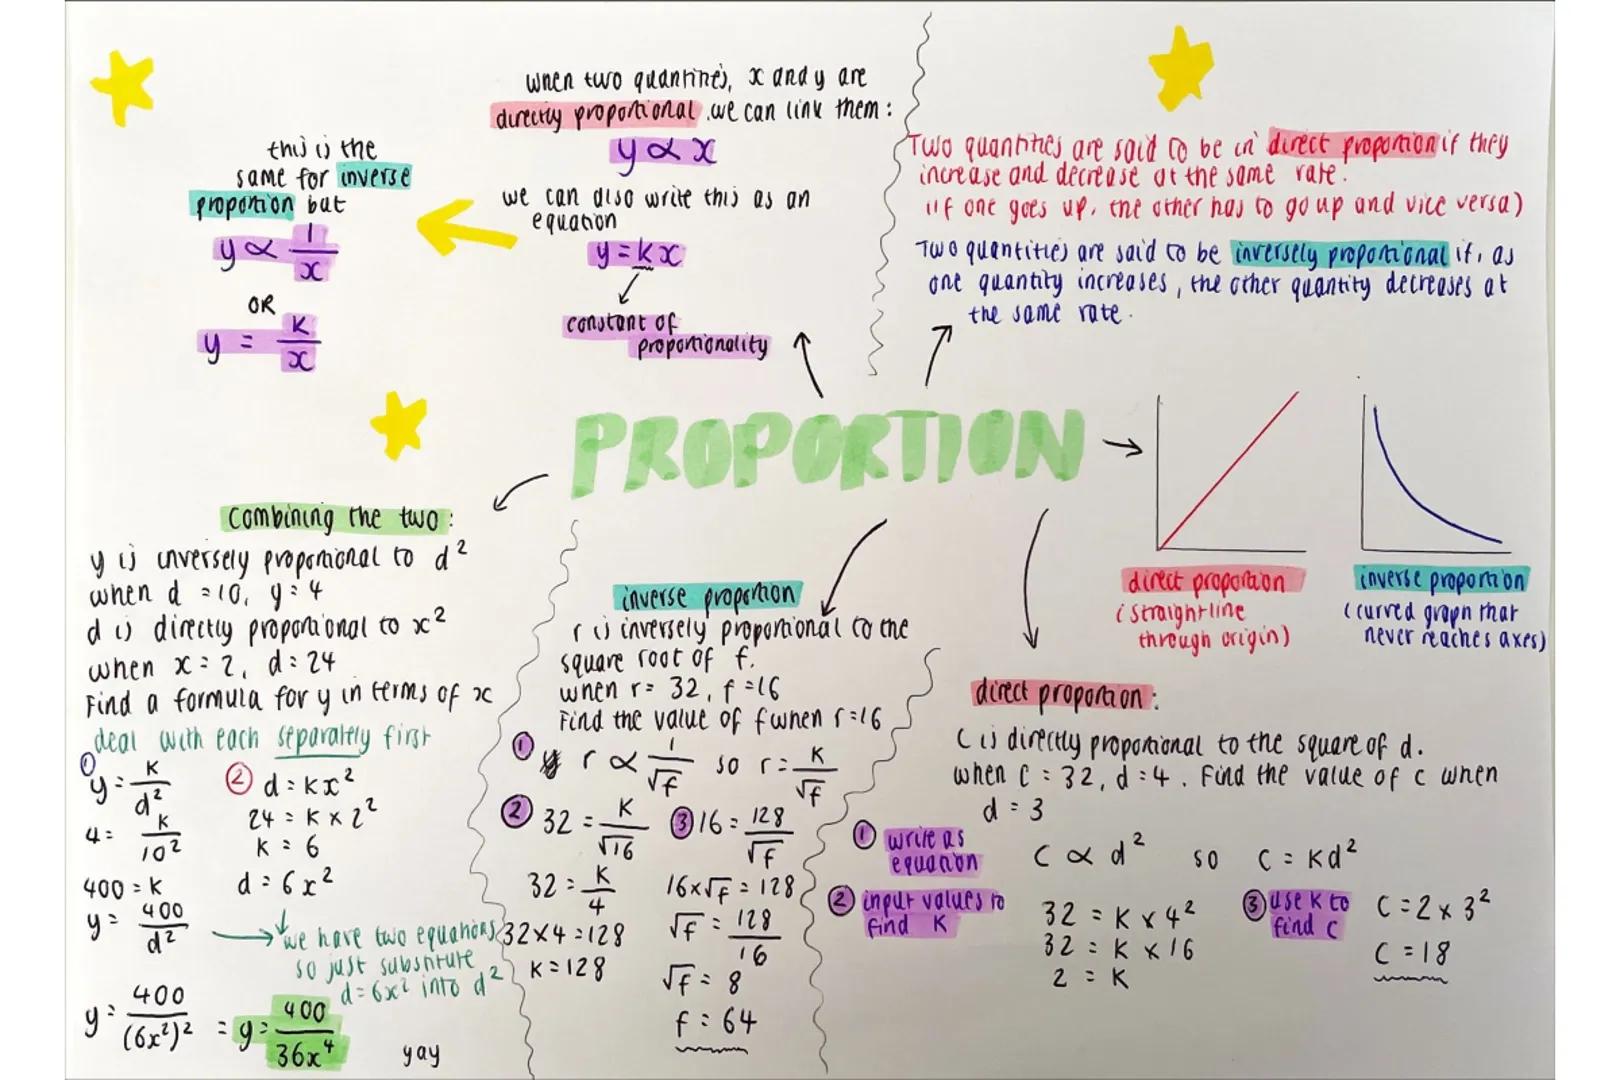 when two quantities, x and y are
directly proportional we can link them:
y ∝ x
we can also write this as an
equation
y = kx
constant of
proportionality
this is the
same for inverse
proportion but
y ∝ 1/x
OR
y = K/x
Two quantities are said to be in direct proportion if they
increase and decrease at the same rate.
(if one goes up, the other has to go up and vice versa)
Two quantities are said to be inversely proportional if, as
one quantity increases, the other quantity decreases at
the same rate.
PROPORTION
direct proportion
(straight line
through origin)
inverse proportion
(curved graph that
never reaches axes)
combining the two:
y is inversely proportional to d²
when d = 10, y = 4
d is directly proportional to x²
when x = 2, d = 24
Find a formula for y in terms of x
deal with each separately first
① y = K/d²
4 = K/10²
400 = K
y = 400/d²
② d = Kx²
24 = K x 2²
K = 6
d = 6x²
we have two equations
so just substitute
d = 6x² into d²
y = 400/(6x²)² = y = 400/36x⁴
yay
inverse proportion
r is inversely proportional to the
square root of f.
when r = 32, f = 16
Find the value of f when r = 16
① r ∝ 1/√f so r = K/√f
② 32 = K/√16
32 = K/4
32x4 = 128
K = 128
③ 16 = 128/√f
16x√f = 128
√f = 128/16
√f = 8
f = 64
direct proportion:
C is directly proportional to the square of d.
when C = 32, d = 4. Find the value of c when
d = 3
① write as
equation
C ∝ d² so C = Kd²
② input values to
find K
32 = K x 4²
32 = K x 16
2 = K
③ use K to
find C
C = 2 x 3²
C = 18